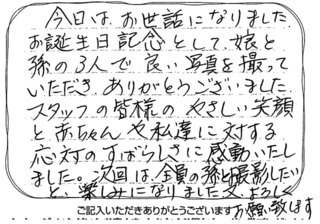 今日は、お世話になりました。
お誕生日記念として、娘と
孫の3人で良い写真を撮って
いただき、ありがとうございました。
スタッフの皆様のやさしい笑顔
と赤ちゃんや私達に対する
応対のすばらしさに感動いたし
ました。次回は、全員の孫と撮影したい
と、楽しみになりました。又、よろしく
お願い致します
ご記入いただきありがとうございます